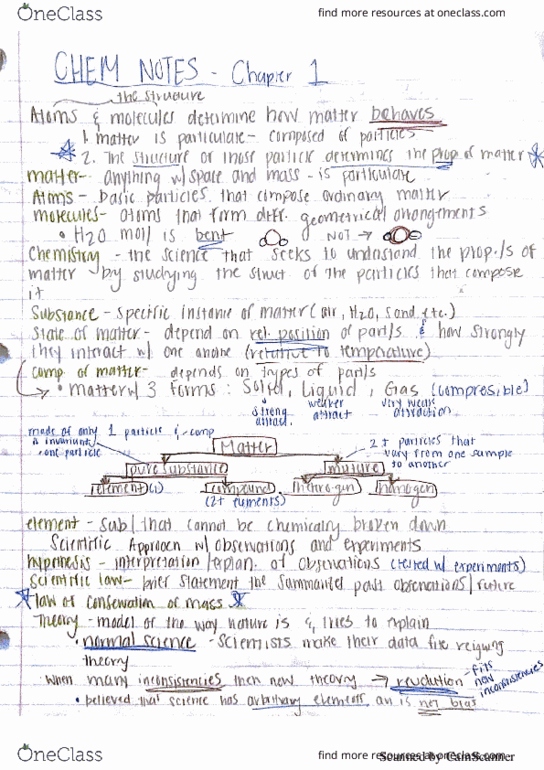 OneClass
find more resources at oneclass.com
CHEM NOTES - Chapter 1
the structure
Atoms & molecules determine how matter behaves
1. matter is particulate - composed of particles
2. The structure of those particle determines the prop of matter
matter - anything w/ space and mass - is particulate
Atoms - basic particles that compose ordinary matter
molecules - atoms that form diff. geometrical arrangements
• H2O mol/ is bent NOT →
Chemistry - the science that seeks to undastand the prop./s of
matter by studying the struct of the particles that compose
it
Substance - specific instance of matter (air, H2O, sand etc.)
State of matter - depend on rel. position of part/s & how strongly
they interact w/ one another (relative to temperature)
comp of matter - depends on types of part/s
• matter w/ 3 forms: Solid, Liquid, Gas (compresible)
strong attract.
weaker attract
very weak attraction
made of only 1 particle & comp
is invariant
- one particle
Matter
2+ particles that
vary from one sample
to another
pure substance
mixture
element (1)
compound
(2+ elements)
hetrogen
homogen
element - sub/ that cannot be chemically broken down
Scientific Approach w/ observations and experiments
hypothesis - interpretation/explan. of observations (tested w/ experiments)
Scientific law - brief statement the past observations/future
law of conservation of mass
Theory - model of the way nature is & tries to explain
• normal science - scientists make their data fit reigning
theory
when many inconsistencies then new theory → revolution
- fits
new
inconsistencies
• believed that science has arbitrary elements, an is not bias
OneClass
find more resources at oneclass.com
Scanned by CamScanner